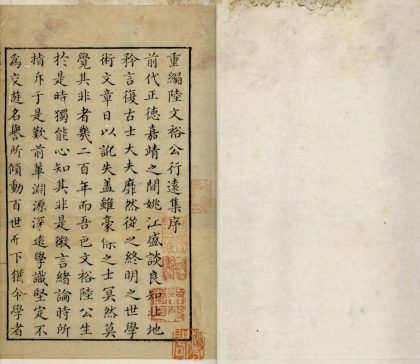 重編陸文裕公行遠集序
前代正德嘉靖之間姚江盛談良知北地
矜言復古士大夫靡然從之終明之世學
術文章日以訛失蓋雖豪俊之士冥然莫
覺其非者幾二百年而吾邑文裕陸公生
於是時獨能心知其非是微言緒論時所
指斥于是歎前軰淵源深遠學識堅定不
為交遊名譽所傾動百世而下猶令學者